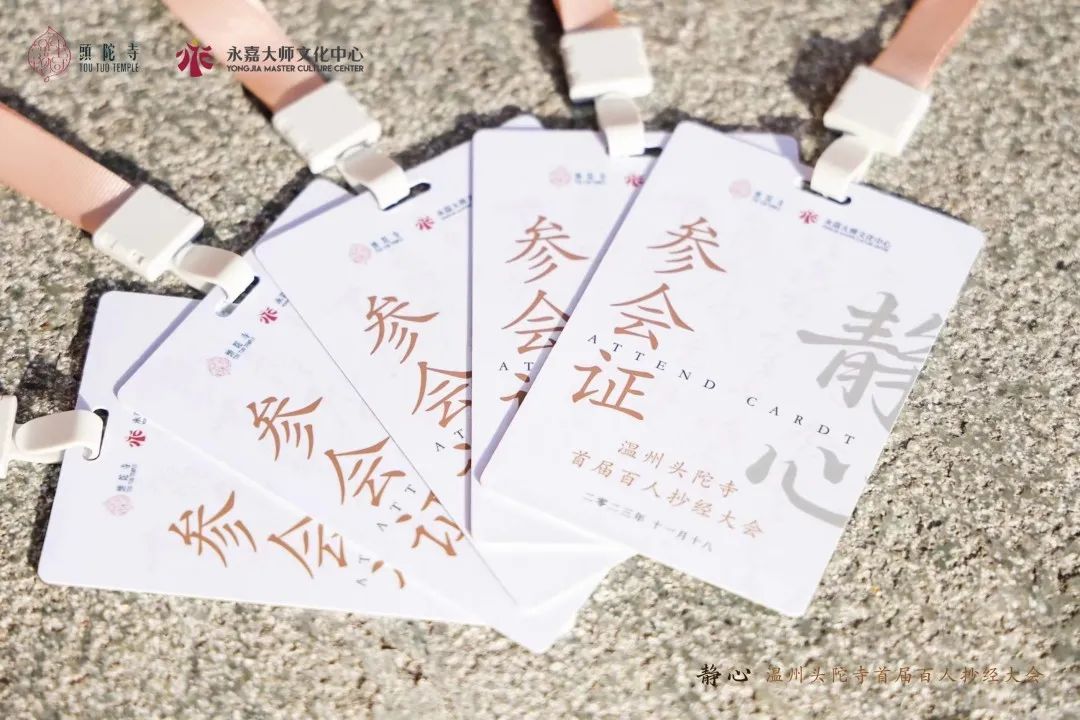 頭陀寺
TOU TUO TEMPLE
永嘉大师文化中心
YONGJIA MASTER CULTURE CENTER
参会证
参会证
参会
参会
参会证
ATTEND CARDT
静心
永嘉大师文化中心
温州头陀寺
首届百人抄经大会
二零二三年 十一月十八
静心 温州头陀寺首届百人抄经大会